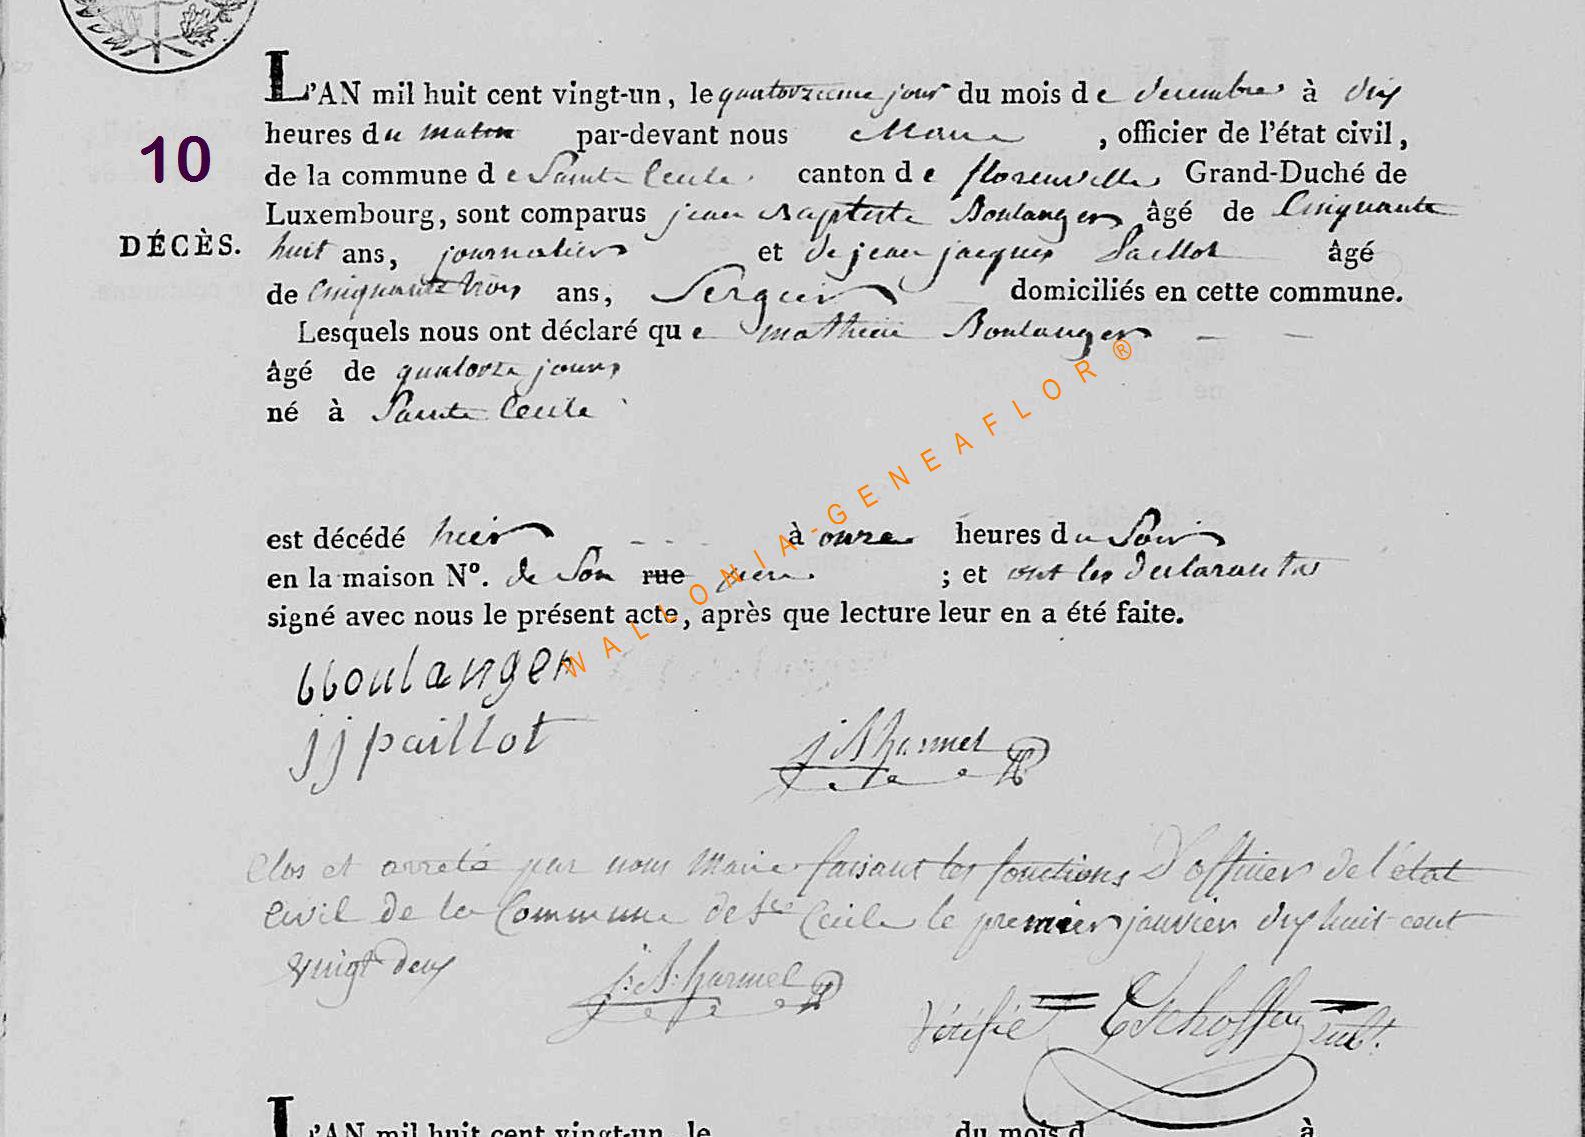 L'AN mil huit cent vingt-un, le quatorzieme jour du mois de decembre à dix
heures du matin par-devant nous Maire, officier de l'état civil,
10
de la commune de Sainte Cecile canton de florenville Grand-Duché de
Luxembourg, sont comparus jean Baptiste Boulanger âgé de Cinquante
DÉCÈS.
huit ans, journalier et de jean jacques Paillot âgé
de Cinquante trois ans, Serger domiciliés en cette commune.
Lesquels nous ont déclaré que mathieu Boulanger
âgé de quatorze jours
né à Sainte Cecile
est décédé hier à onze heures du Soir
en la maison N°. de Son rue pere ; et ont les declarantes
signé avec nous le présent acte, après que lecture leur en a été faite.
WALLONIA-GENEAFLOR ®
Boulanger
jj paillot
j B harmel
Clos et arreté par nous Maire faisant les fonctions D'officier de l'état
Civil de la Commune de Ste Cecile le premier janvier dix huit cent
vingt deux
j: B: harmel
Vérifié
L'AN mil huit cent vingt-un, le du mois d à